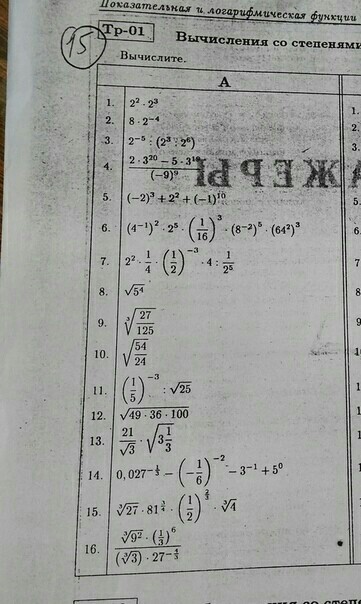 Показательная и логарифмическая функции
15
Тр-01 Вычисления со степенями
Вычислите.
А
1. 2² · 2³
2. 8 · 2⁻⁴
3. 2⁻⁵ : (2³ · 2⁶)
4. (2 · 3²⁰ − 5 · 3¹⁹)/(−9)⁹
5. (−2)³ + 2² + (−1)¹⁰
6. (4⁻¹)² · 2⁵ · (1/16)³ · (8⁻²)⁵ · (64²)³
7. 2² · 1/4 · (1/2)⁻³ · 4 : 1/2⁵
8. √5⁴
9. ∛(27/125)
10. √(54/24)
11. (1/5)⁻³ : √25
12. √(49 · 36 · 100)
13. 21/√3 · √(3 1/3)
14. 0,027^(−1/3) − (−1/6)⁻² − 3⁻¹ + 5⁰
15. ∛27 · 81^(3/4) · (1/2)^(2/3) · ∛4
16. (∛9² · (1/3)⁶)/((∛3) · 27^(−4/3))